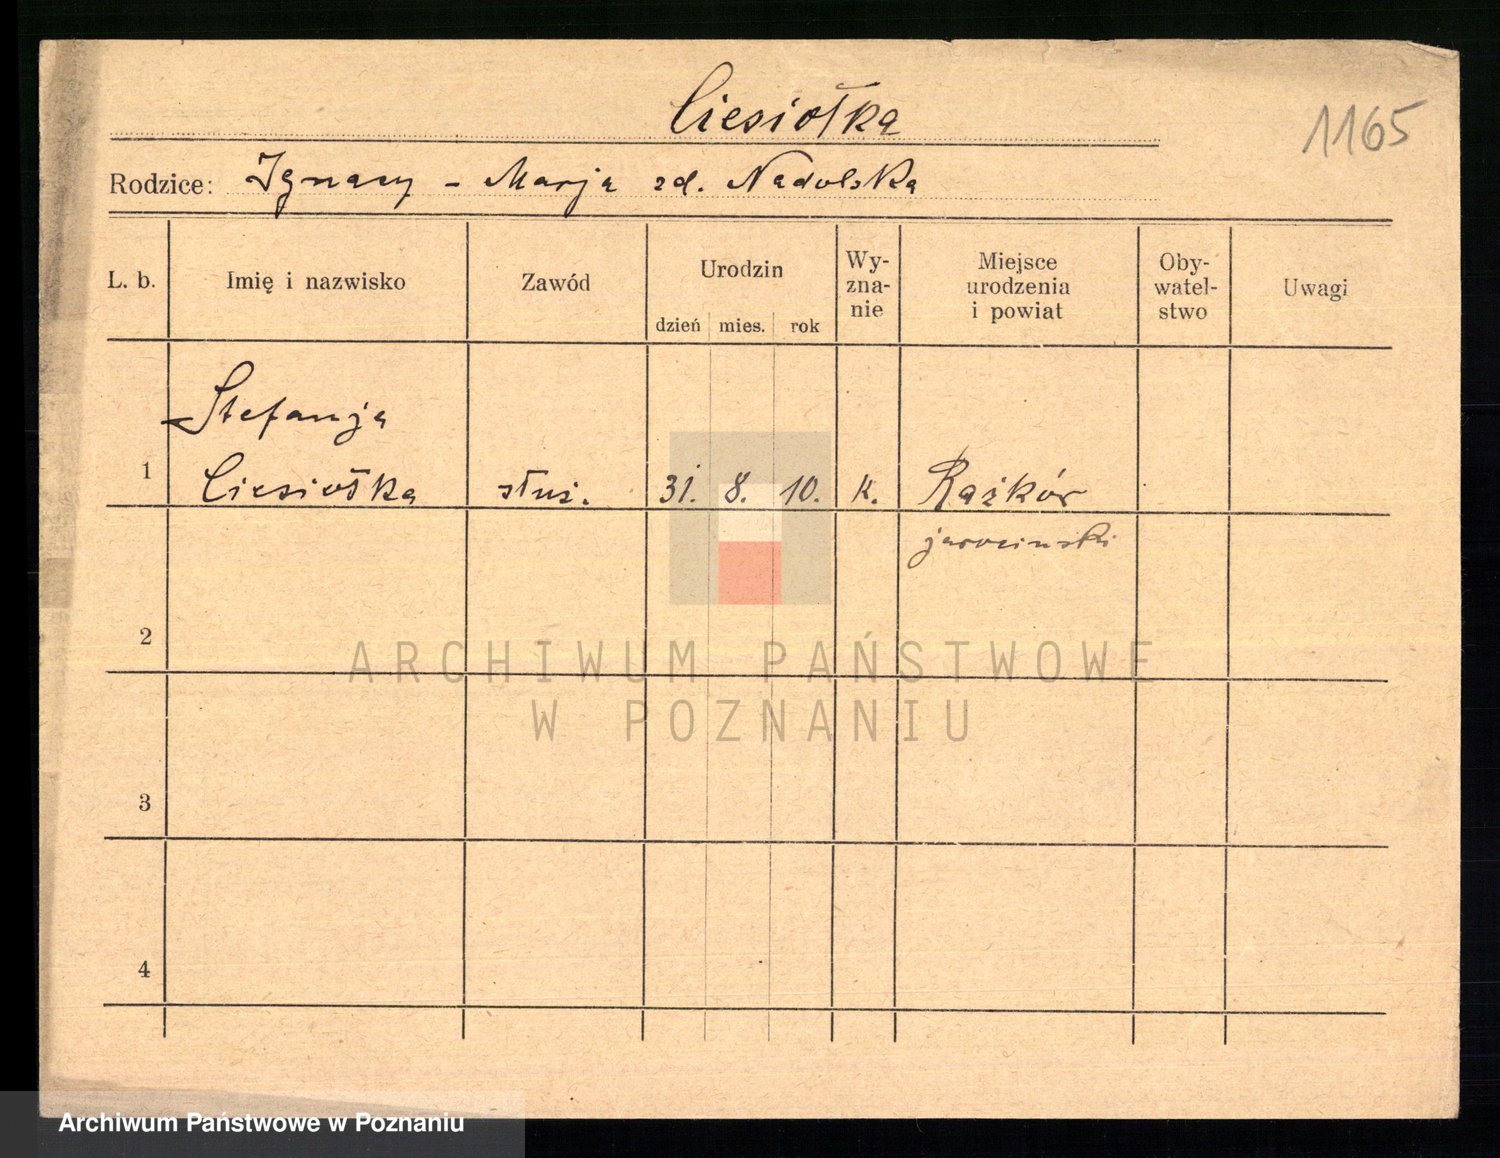 Ciesiołka
1165
Rodzice: Ignacy - Marja zd. Nadolska
L. b. Imię i nazwisko Zawód Urodzin Wy-zna-nie Miejsce urodzenia i powiat Oby-watel-stwo Uwagi
dzień mies. rok
Stefanja
1 Ciesiołka służ. 31. 8. 10. k. Rażków
jarociński
2
ARCHIWUM PAŃSTWOWE
W POZNANIU
3
4
Archiwum Państwowe w Poznaniu